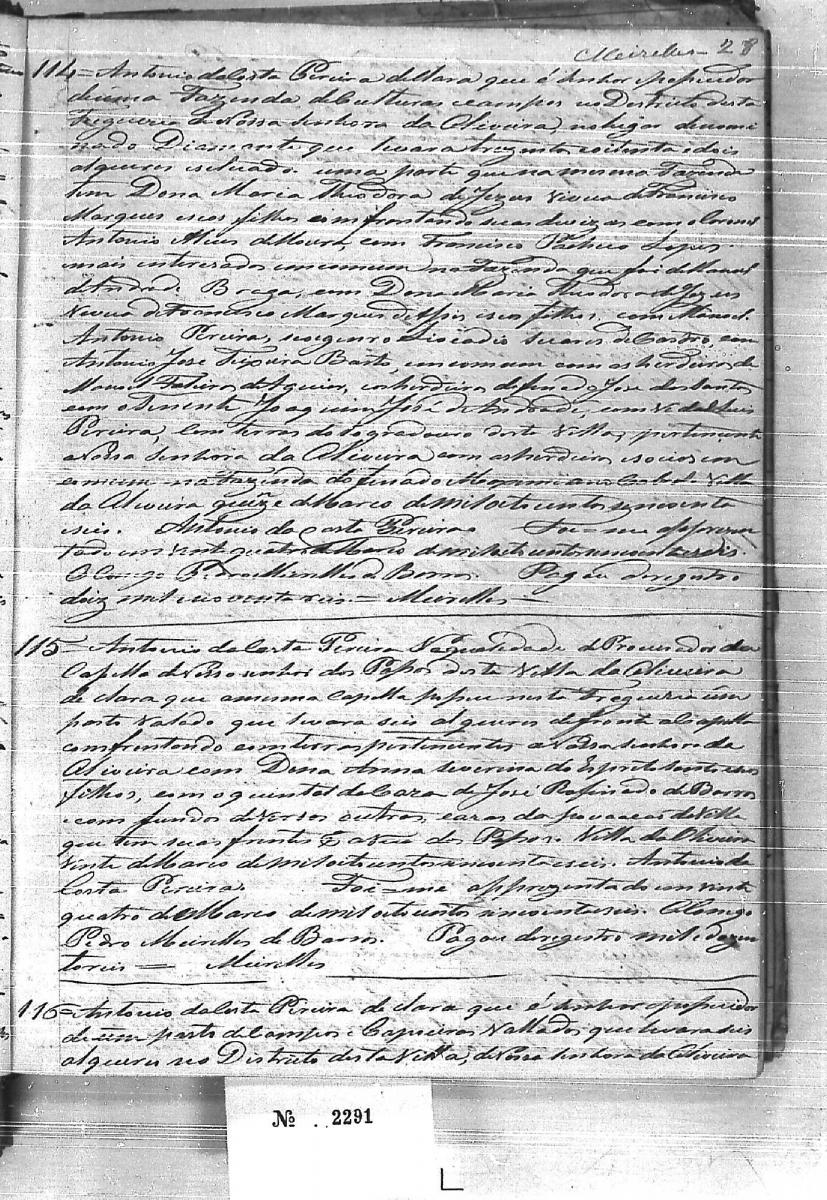 Meirelles 28
114 = Antonio da Costa Pereira declara que é Senhor e possuidor
de uma Fazenda de Culturas e campos no Districto desta
Freguezia de Nossa Senhora da Oliveira, no lugar denomi
nado Diamante que levara trezentos e oitenta e dois
alqueires e citado uma parte que na mesma Fazenda
tem Dona Maria Theodora de Jezus Viuva de Francisco
Marques e seos filhos comfrontando suas devizas com o Coronel
Antonio Alves de Moura, com Francisco Pacheco Lopes
mais interezados em comum na Fazenda que foi de Manoel
de Andrade Braga, com Dona Maria Theodora de Jezus
Viuva de Francisco Marques de Assis e seos filhos, com Manoel
Antonio Pereira, seo genro Leocadio Soares de Castro, com
Antonio José Teixeira Basto, em comum com os herdeiros de
Manoel de Aguiar, co herdeiros do finado José dos Santos
com o Tenente Joaquim José de Andrade, com
Pereira, com terras do Logradouro desta Villa, pertencente
a Nossa Senhora da Oliveira com os herdeiros e socios em
comum na Fazenda do finado Villa
da Oliveira quinze de Marco de mil oito centos sincoenta
e seis. Antonio da Costa Pereira Foi-me aprezen
tado em vinte quatro de Marco de mil oito centos sincoenta e seis.
O Conego Pedro Meirelles de Barros. Pagou de registro
doiz mil e noventa reis = Meirelles =
115 = Antonio da Costa Pereira Na qualidade de Procurador da
Capella de Nosso Senhor dos Passos desta Villa da Oliveira
declara que a mesma Capella possue nesta Freguezia um
pasto Valado que levara seis alqueires defronte a Capella
comfrontando com terras pertencentes a Nossa Senhora da
Oliveira com Dona Anna Severina do Espirito Santo e seos
filhos, com o quintal da Caza de José de Barros
e com fundos de versos outros, cazas da povoacaõ da Villa
que tem suas frentes a rua dos Passos. Villa da Oliveira
vinte de Marco de mil oito centos sincoenta e seis. Antonio da
Costa Pereira. Foi-me apprezentado em vinte
quatro de Marco de mil oito centos sincoenta e seis. O Conego
Pedro Meirelles de Barros. Pagou de registro mil e dozen
tos reis = Meirelles
116 = Antonio da Costa Pereira declara que é Senhor e possuidor
de um pasto de Campos e Capoeiras Vallados que levara seis
alqueires no Districto desta Villa, de Nossa Senhora da Oliveira
Nº 2291
L